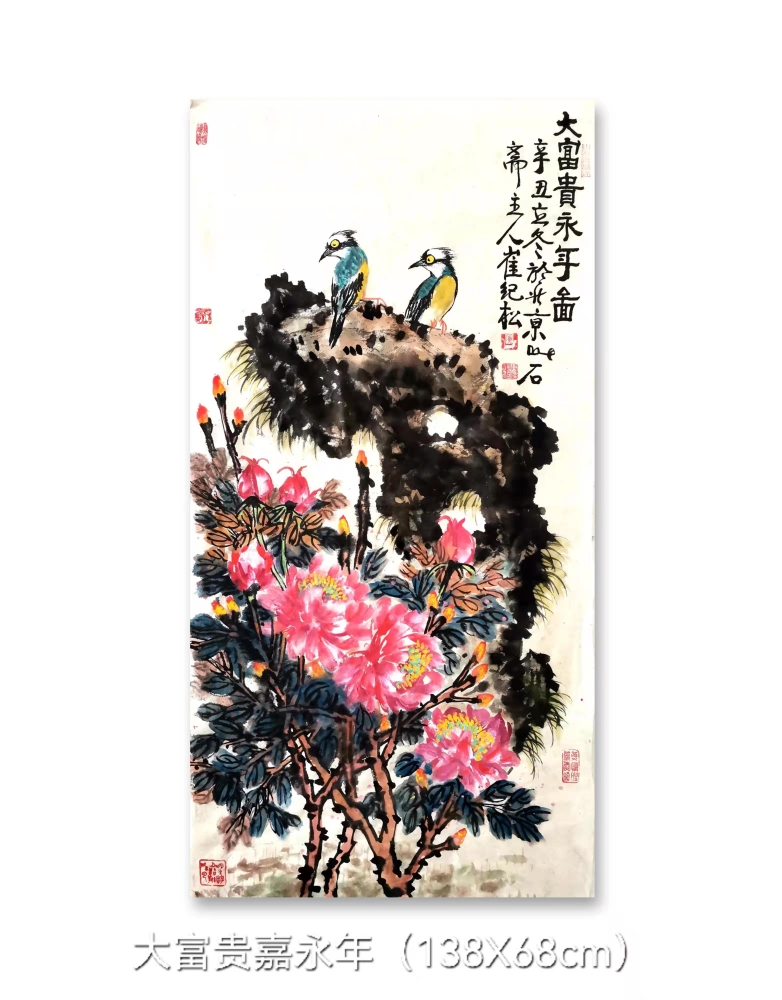 大富貴永年圖
辛丑立冬於北京山石
齋主人崔纪松
大富贵嘉永年（138X68cm）